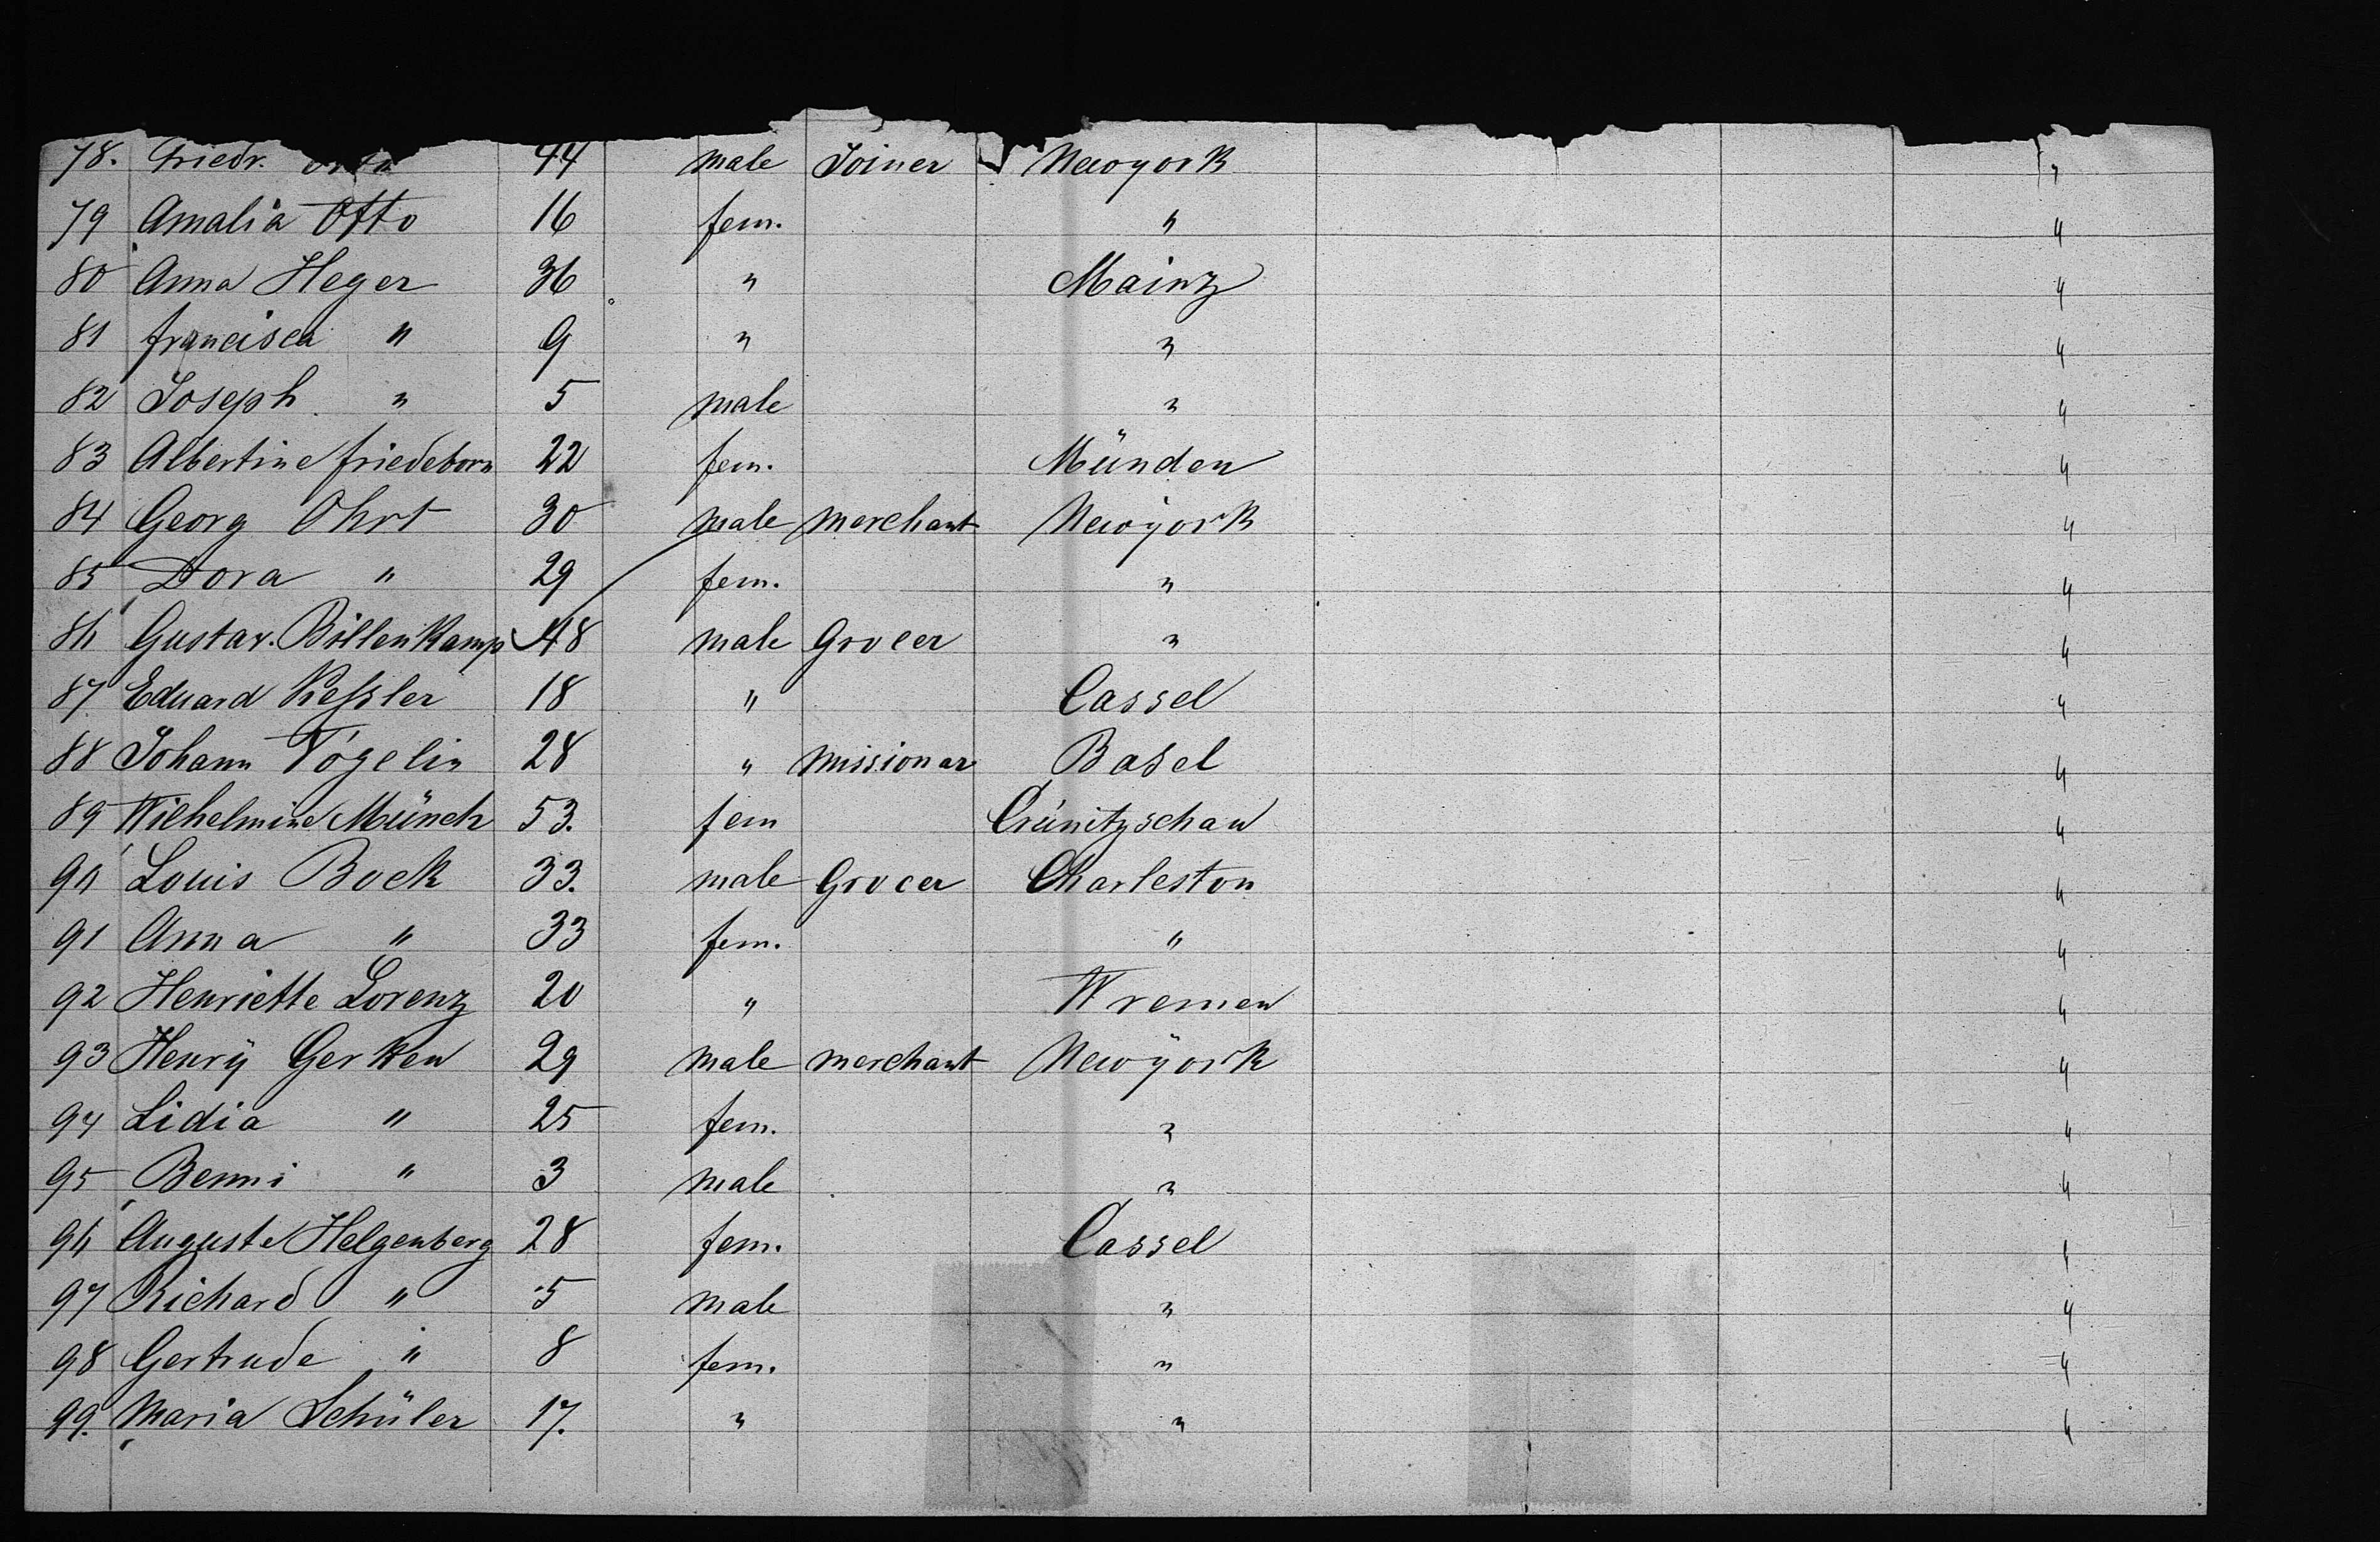 78. Friedr. Otto 44 male Joiner Newyork "
79 Amalia Otto 16 fem. " "
80 Anna Heger 36 " Mainz "
81 francisca " 9 " " "
82 Joseph " 5 male " "
83 Albertine friedeborn 22 fem. Münden "
84 Georg Ohrt 30 male merchant Newÿork "
85 Dora " 29 fem. " "
86 Gustav. Böllenkamp 48 male Grocer " "
87 Eduard Keſsler 18 " Cassel "
88 Johann Vögelin 28 " missionar Basel "
89 Wilhelmine Münch 53. fem Crünitzschau "
90 Louis Bock 33. male Grocer Charleston "
91 Anna " 33 fem. " "
92 Henriette Lorenz 20 " Wremen "
93 Henrÿ Gerken 29 male merchant Newÿork "
94 Lidia " 25 fem. " "
95 Benni " 3 male " "
96 Auguste Helgenberg 28 fem. Cassel "
97 Richard " 5 male " "
98 Gertrude " 8 fem. " "
99. Maria Schüler 17. " " "